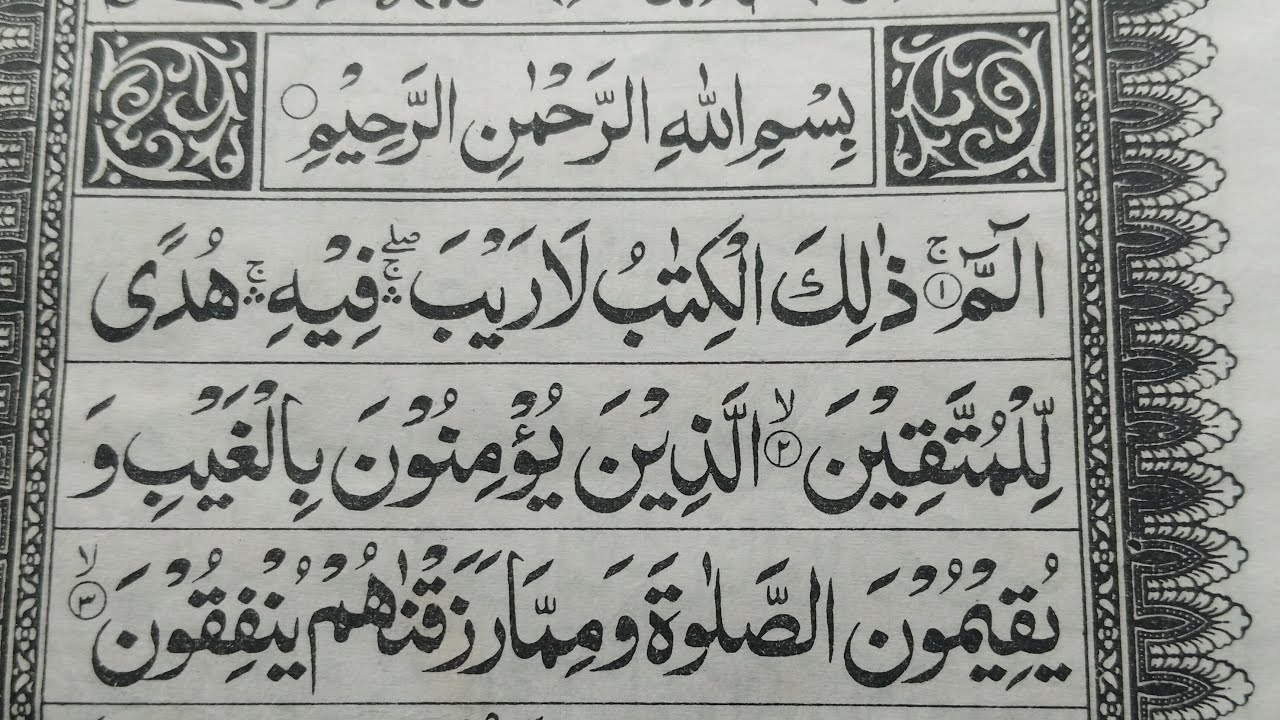 بِسْمِ اللهِ الرَّحْمٰنِ الرَّحِيْمِ ○
الٓمّٓ ۚ﴿۱﴾ ذٰلِكَ الْكِتٰبُ لَا رَيْبَ ۛۖۚ فِيْهِ ۛۚ هُدًى
لِّلْمُتَّقِيْنَ ۙ﴿۲﴾ الَّذِيْنَ يُؤْمِنُوْنَ بِالْغَيْبِ وَ
يُقِيْمُوْنَ الصَّلٰوةَ وَمِمَّا رَزَقْنٰهُمْ يُنْفِقُوْنَ ۙ﴿۳﴾